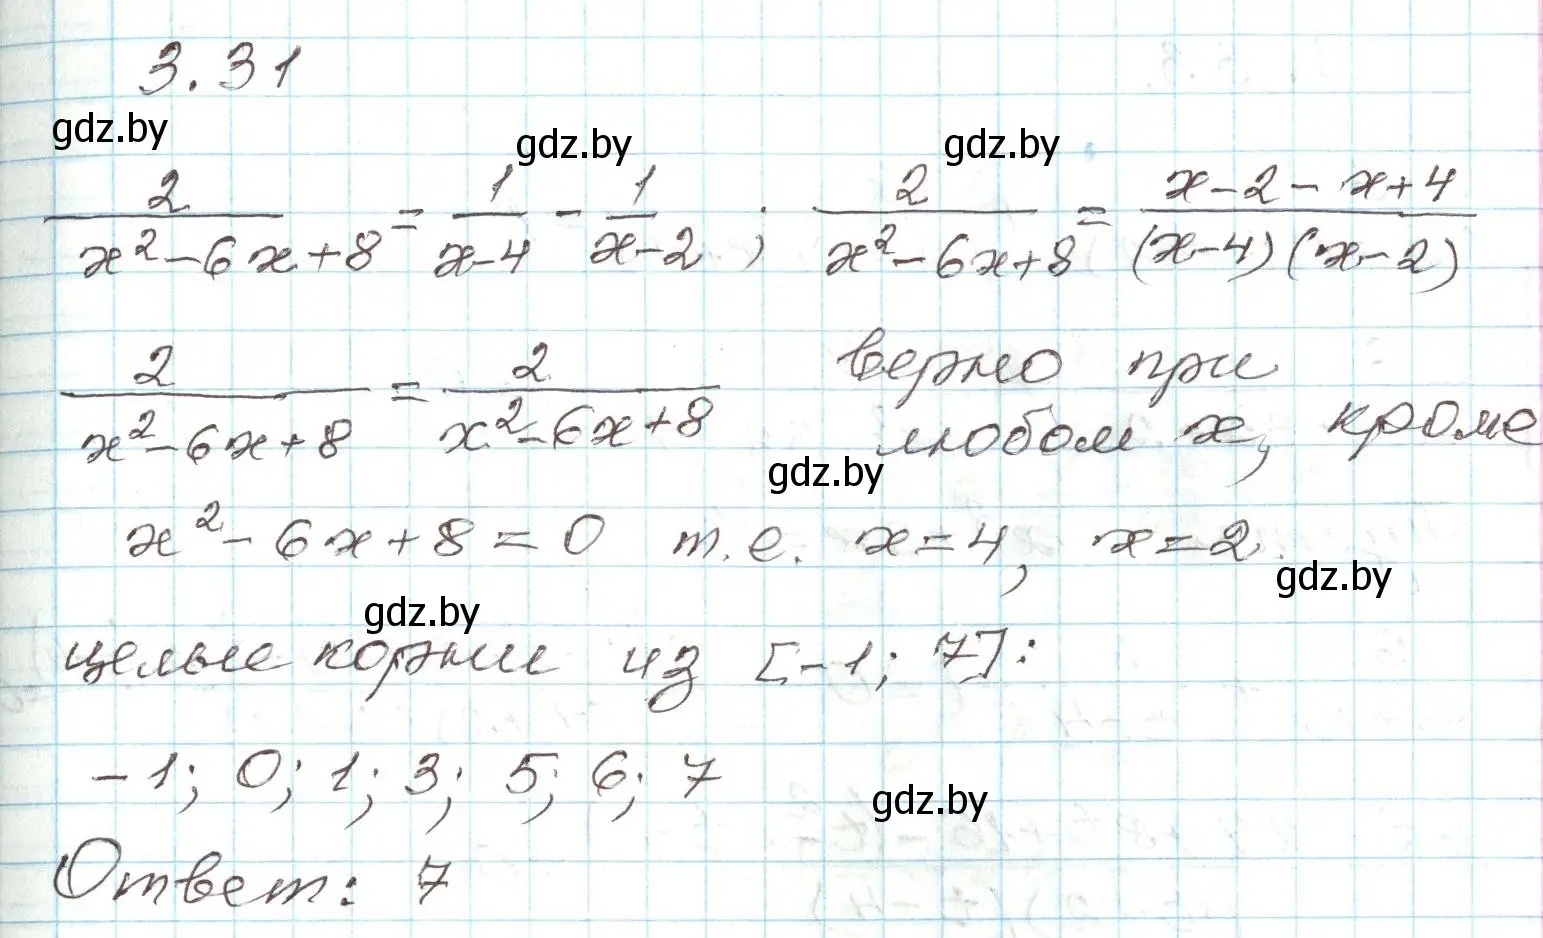 3.31
gdz.by
gdz.by gdz.by
2/(x²-6x+8) = 1/(x-4) - 1/(x-2); 2/(x²-6x+8) = (x-2-x+4)/((x-4)(x-2))
2/(x²-6x+8) = 2/(x²-6x+8) верно при
любом x, кроме
gdz.by
x²-6x+8=0 т.е. x=4, x=2.
gdz.by
gdz.by
целые корни из [-1; 7]:
-1; 0; 1; 3; 5; 6; 7
gdz.by
Ответ: 7